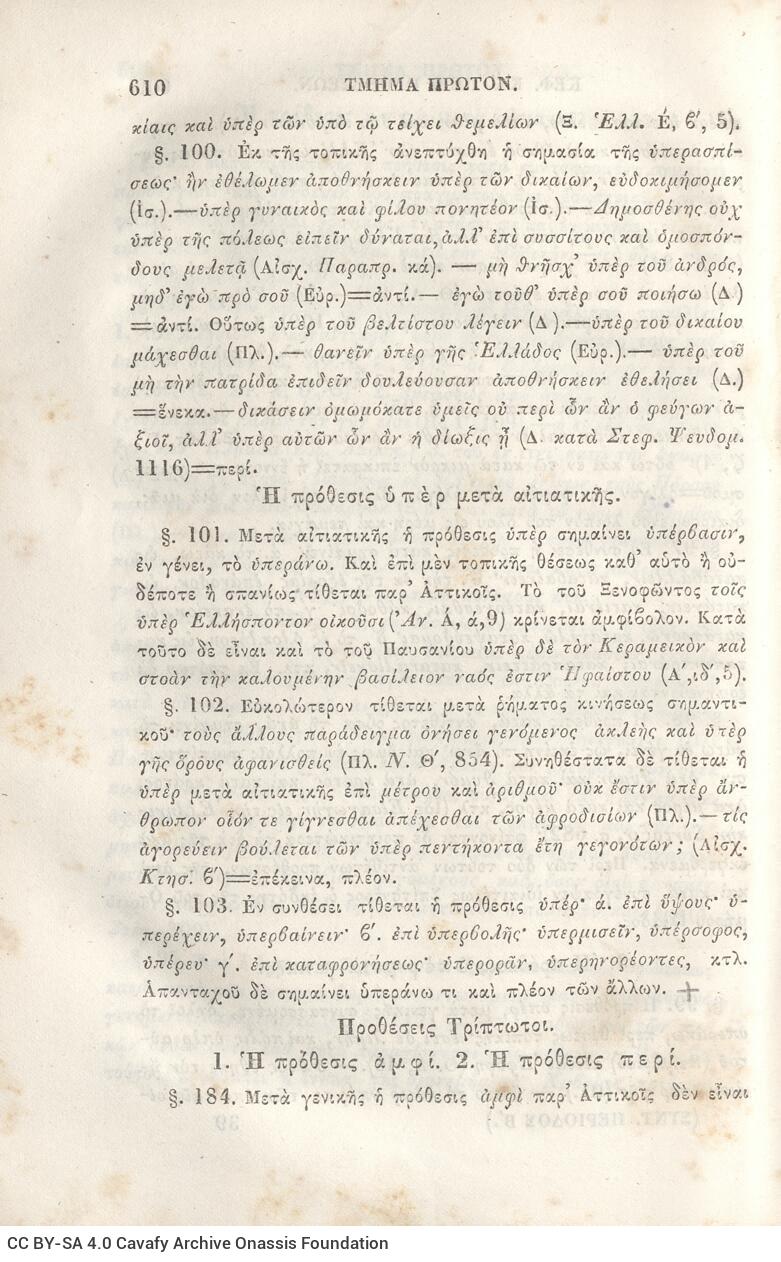 610 ΤΜΗΜΑ ΠΡΩΤΟΝ.
κίαις καὶ ὑπὲρ τῶν ὑπὸ τῷ τείχει θεμελίων (Ξ. Ἑλλ. Ἑ, ϐʹ, 5).
§. 100. Ἐκ τῆς τοπικῆς ἀνεπτύχθη ἡ σημασία τῆς ὑπερασπί-
σεως· ἢν ἐθέλωμεν ἀποθνήσκειν ὑπὲρ τῶν δικαίων, εὐδοκιμήσομεν
(Ἰσ.).—ὑπὲρ γυναικὸς καὶ φίλου πονητέον (Ἰσ.).—Δημοσθένης οὐχ
ὑπὲρ τῆς πόλεως εἰπεῖν δύναται, ἀλλ' ἐπὶ συσσίτους καὶ ὁμοσπόν-
δους μελετᾷ (Αἰσχ. Παραπρ. κά). — μὴ θνῆσχ' ὑπὲρ τοῦ ἀνδρός,
μηδ' ἐγὼ πρὸ σοῦ (Εὐρ.)=ἀντί.— ἐγὼ τοῦθ' ὑπὲρ σοῦ ποιήσω (Δ.)
=ἀντί. Οὕτως ὑπὲρ τοῦ βελτίστου λέγειν (Δ.).—ὑπὲρ τοῦ δικαίου
μάχεσθαι (Πλ.).— θανεῖν ὑπὲρ γῆς Ἑλλάδος (Εὐρ.).— ὑπὲρ τοῦ
μὴ τὴν πατρίδα ἐπιδεῖν δουλεύουσαν ἀποθνήσκειν ἐθελήσει (Δ.)
=ἕνεκα.—δικάσειν ὀμωμόκατε ὑμεῖς οὐ περὶ ὧν ἂν ὁ φεύγων ἀ-
ξιοῖ, ἀλλ' ὑπὲρ αὐτῶν ὧν ἂν ἡ δίωξις ᾖ (Δ. κατὰ Στεφ. Ψευδομ.
1116)=περί.
Ἡ πρόθεσις ὑπὲρ μετὰ αἰτιατικῆς.
§. 101. Μετὰ αἰτιατικῆς ἡ πρόθεσις ὑπὲρ σημαίνει ὑπέρβασιν,
ἐν γένει, τὸ ὑπεράνω. Καὶ ἐπὶ μὲν τοπικῆς θέσεως καθ' αὑτὸ ἢ οὐ-
δέποτε ἢ σπανίως τίθεται παρ' Ἀττικοῖς. Τὸ τοῦ Ξενοφῶντος τοῖς
ὑπὲρ Ἑλλήσποντον οἰκοῦσι (Ἀν. Ἁ, ά, 9) κρίνεται ἀμφίϐολον. Κατὰ
τοῦτο δὲ εἶναι καὶ τὸ τοῦ Παυσανίου ὑπὲρ δὲ τὸν Κεραμεικὸν καὶ
στοὰν τὴν καλουμένην βασίλειον ναός ἐστιν Ἡφαίστου (Αʹ, ιδʹ, 5).
§. 102. Εὐκολώτερον τίθεται μετὰ ῥήματος κινήσεως σημαντι-
κοῦ· τοὺς ἄλλους παράδειγμα ὀνήσει γενόμενος ἀκλεὴς καὶ ὑπὲρ
γῆς ὅρους ἀφανισθεὶς (Πλ. Ν. Θʹ, 854). Συνηθέστατα δὲ τίθεται ἡ
ὑπὲρ μετὰ αἰτιατικῆς ἐπὶ μέτρου καὶ ἀριθμοῦ· οὐκ ἔστιν ὑπὲρ ἄν-
θρωπον οἷόν τε γίγνεσθαι ἀπέχεσθαι τῶν ἀφροδισίων (Πλ.).—τίς
ἀγορεύειν βούλεται τῶν ὑπὲρ πεντήκοντα ἔτη γεγονότων; (Αἰσχ.
Κτησ. ϐʹ)=ἐπέκεινα, πλέον.
§. 103. Ἐν συνθέσει τίθεται ἡ πρόθεσις ὑπέρ· ά. ἐπὶ ὕψους· ὑ-
περέχειν, ὑπερβαίνειν· ϐʹ. ἐπὶ ὑπερβολῆς· ὑπερμισεῖν, ὑπέρσοφος,
ὑπέρευ· γʹ. ἐπὶ καταφρονήσεως· ὑπερορᾶν, ὑπερηνορέοντες, κτλ.
Ἁπανταχοῦ δὲ σημαίνει ὑπεράνω τι καὶ πλέον τῶν ἄλλων. +
Προθέσεις Τρίπτωτοι.
1. Ἡ πρόθεσις ἀμφί. 2. Ἡ πρόθεσις περί.
§. 184. Μετὰ γενικῆς ἡ πρόθεσις ἀμφὶ παρ' Ἀττικοῖς δὲν εἶναι
CC BY-SA 4.0 Cavafy Archive Onassis Foundation